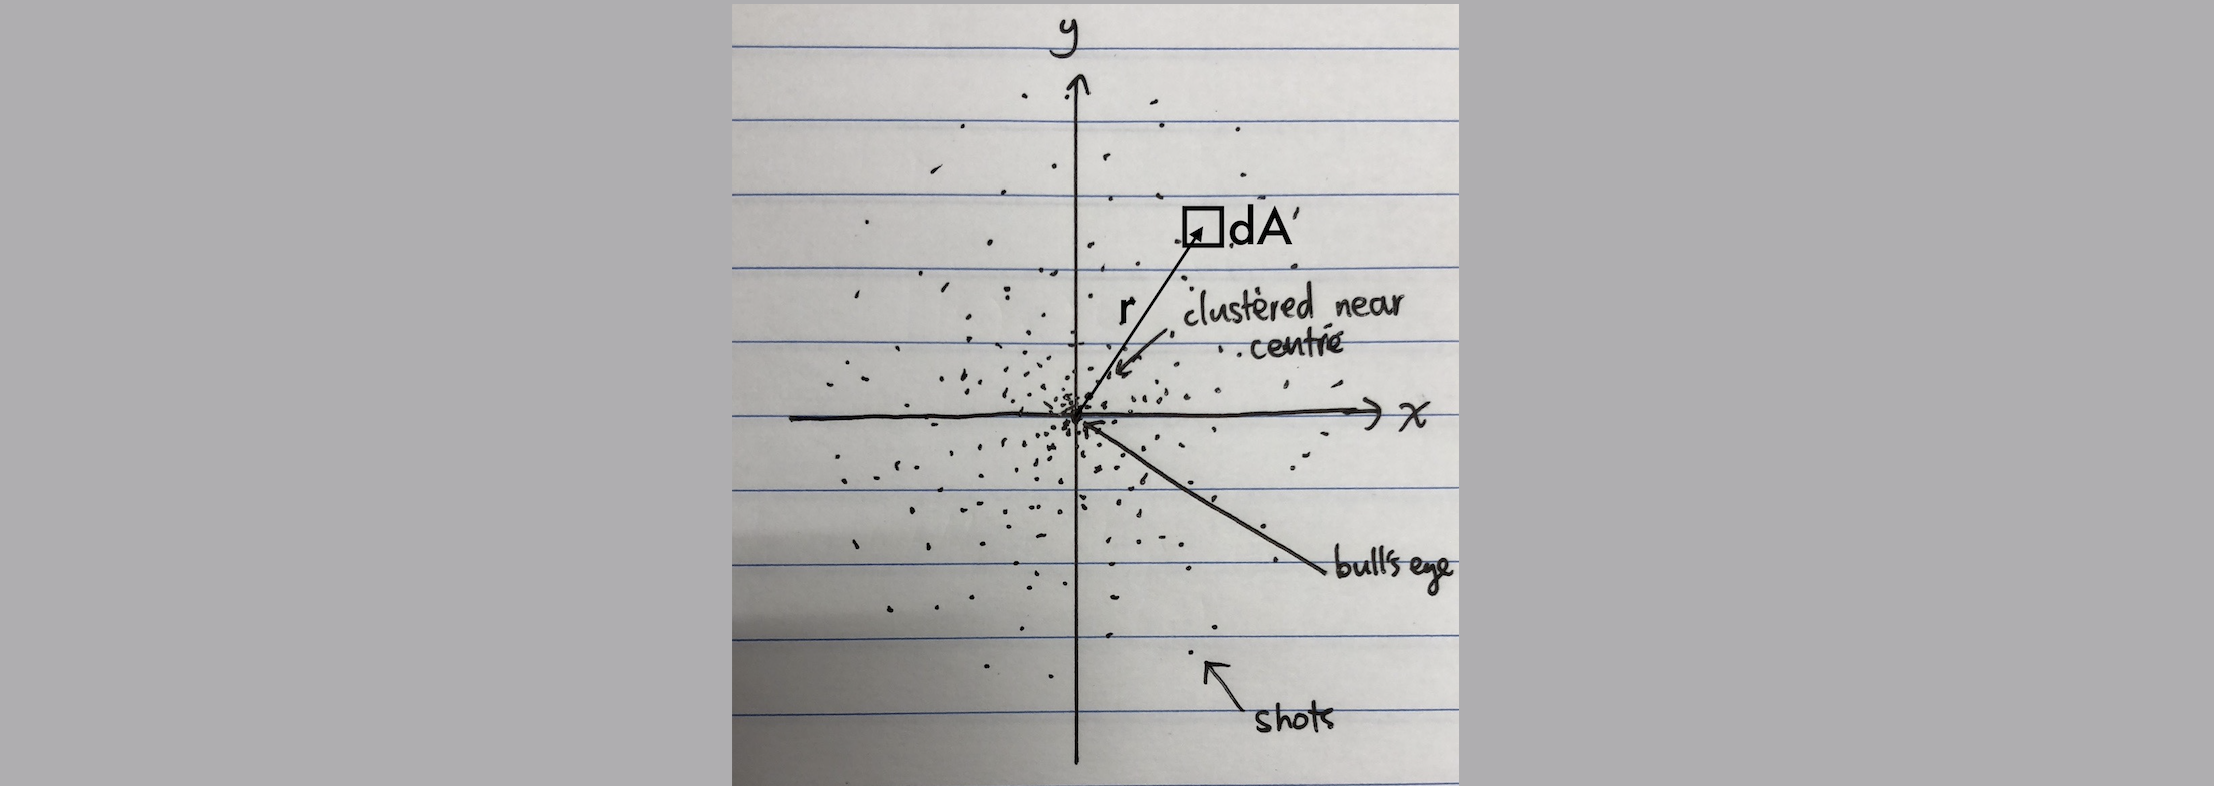 y
dA
r
clustered near
centre
x
bull's eye
shots